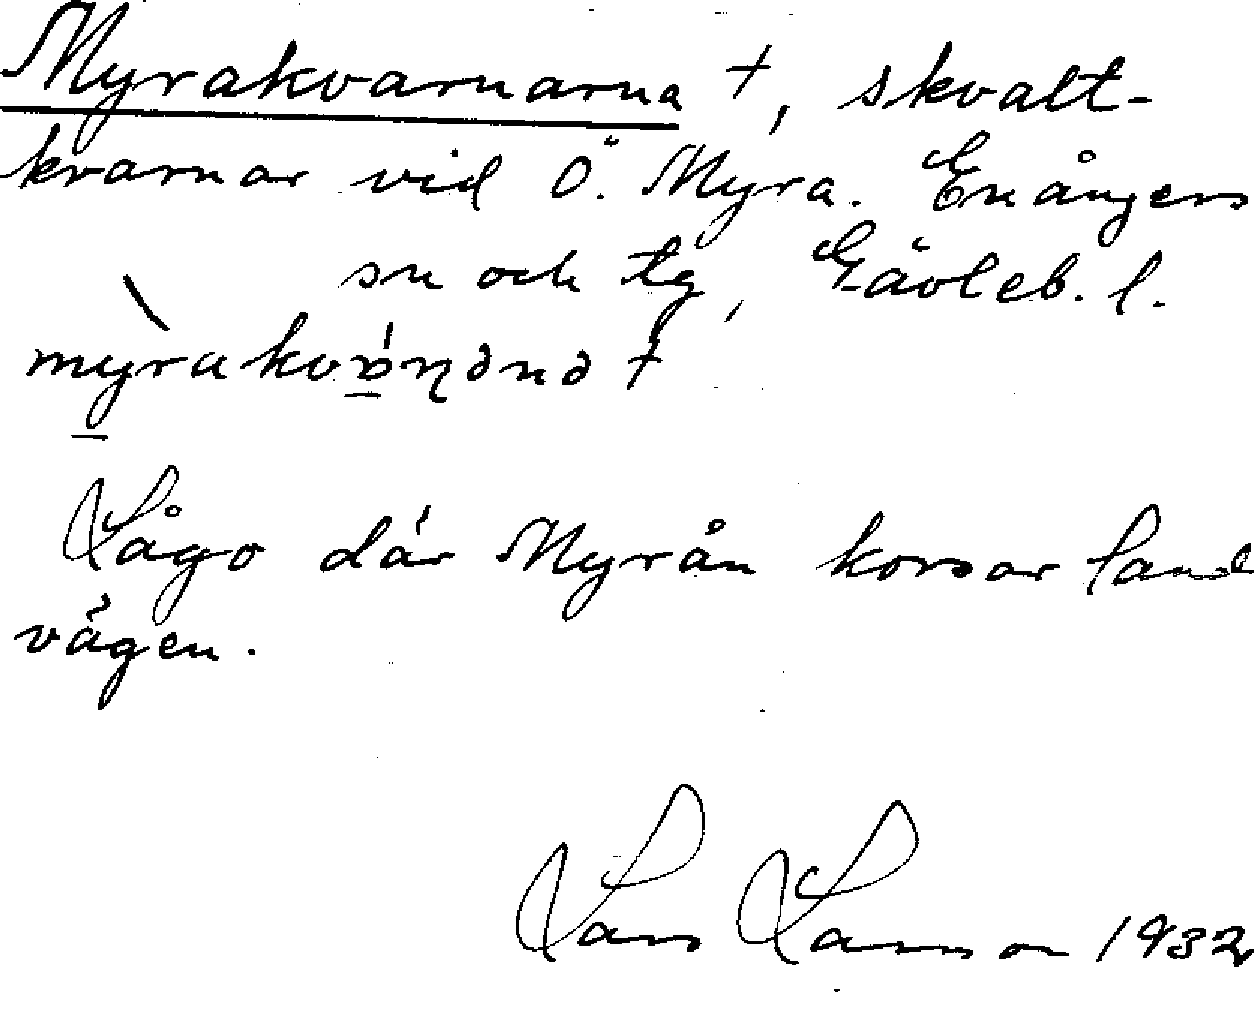 Myrakvarnarna +, skvalt-
kvarnar vid Ö. Myra. Enångers
sn och tg, Gävleb. l.
Lågo där Myrån korsar land
vägen.
Lars Larsson 1932